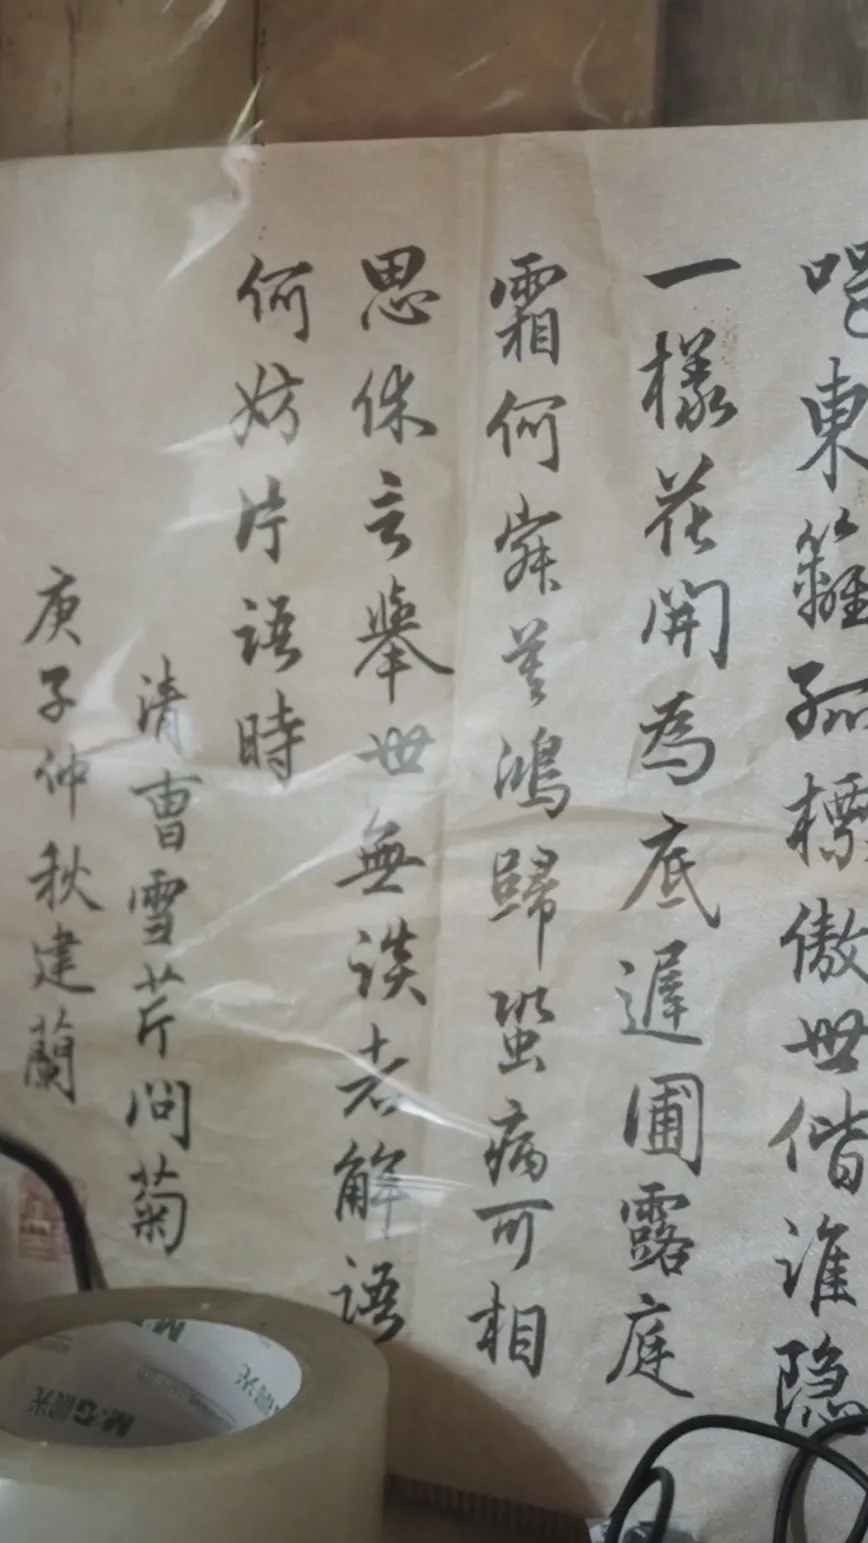 東籬孤標傲世偕誰隱
一樣花開為底遲圃露庭
霜何寂莫鴻歸蛩病可相
思休言舉世無談者解語
何妨片語時
清曹雪芹問菊
庚子仲秋建蘭
M&G晨光